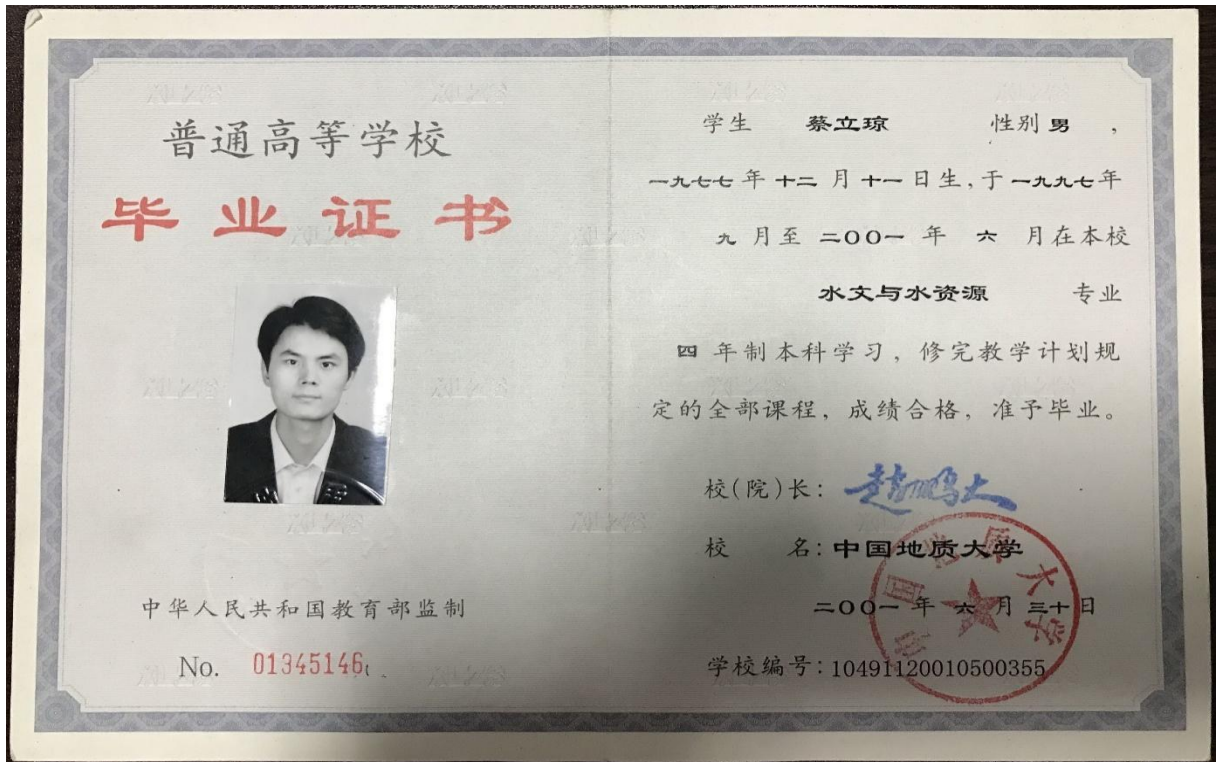 普通高等学校
毕业证书
中华人民共和国教育部监制
No. 01345146
学生 蔡立琼 性别 男 ,
一九七七年 十二 月 十一 日生,于 一九九七年
九 月至 二〇〇一 年 六 月在本校
水文与水资源 专业
四 年制本科学习，修完教学计划规
定的全部课程，成绩合格，准予毕业。
校(院)长: 赵鹏大
校 名: 中国地质大学
二〇〇一 年 六 月 三十日
学校编号: 104911200105003​55
中国地质大学